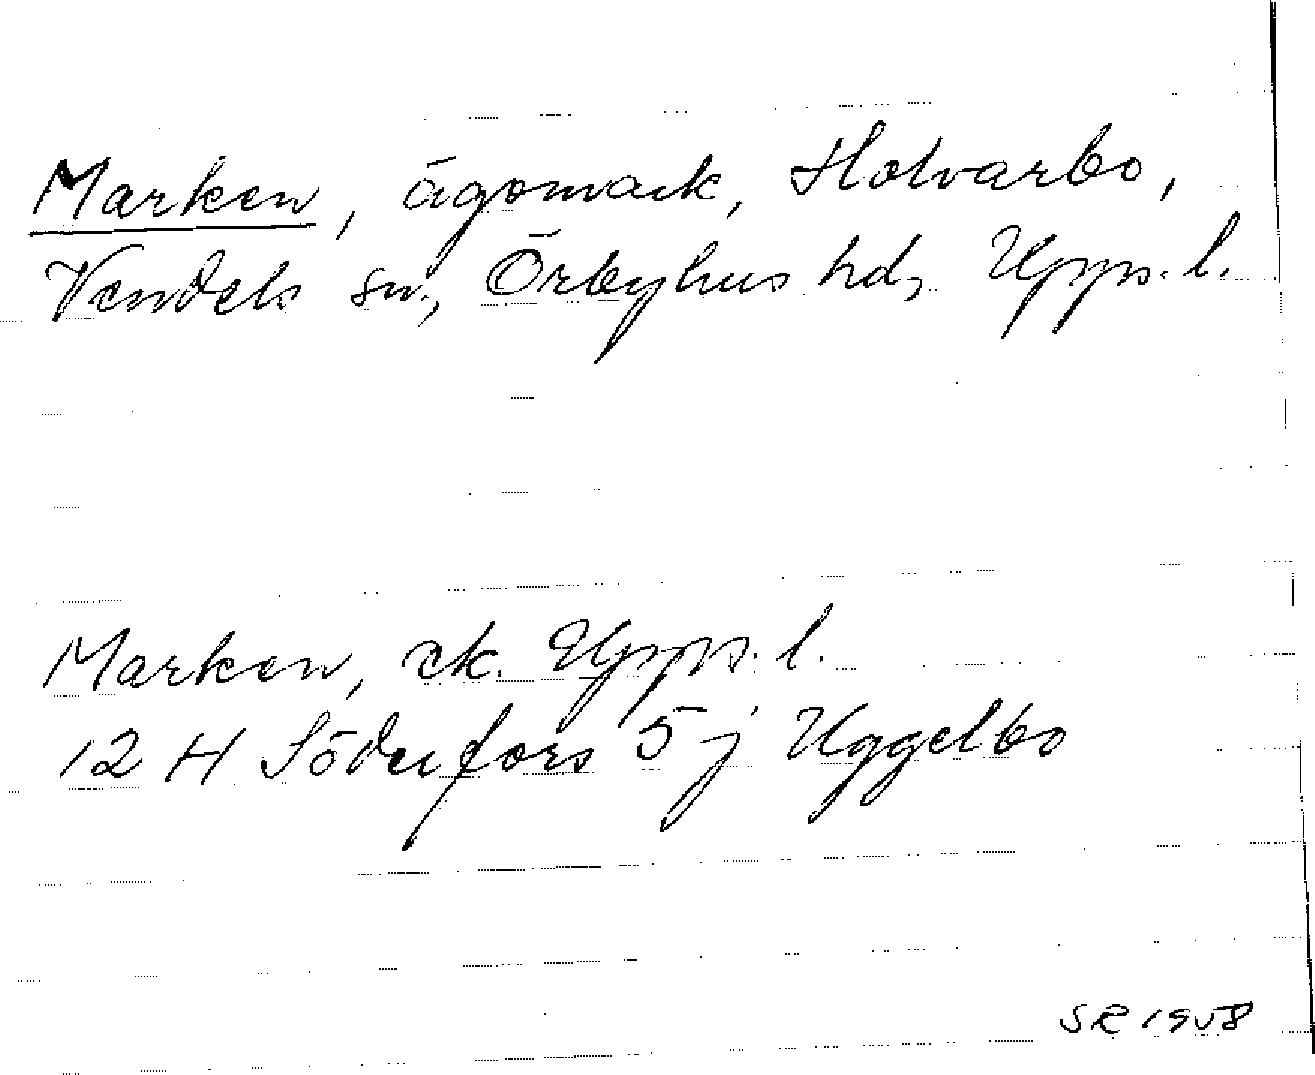 Marken, ägomark, Holvarbo,
Vendels sn, Örbyhus hd, Upps. l.
Marken, ek. Upps. l.
12 H Söderfors 5 j Uggelbo
SR 1958